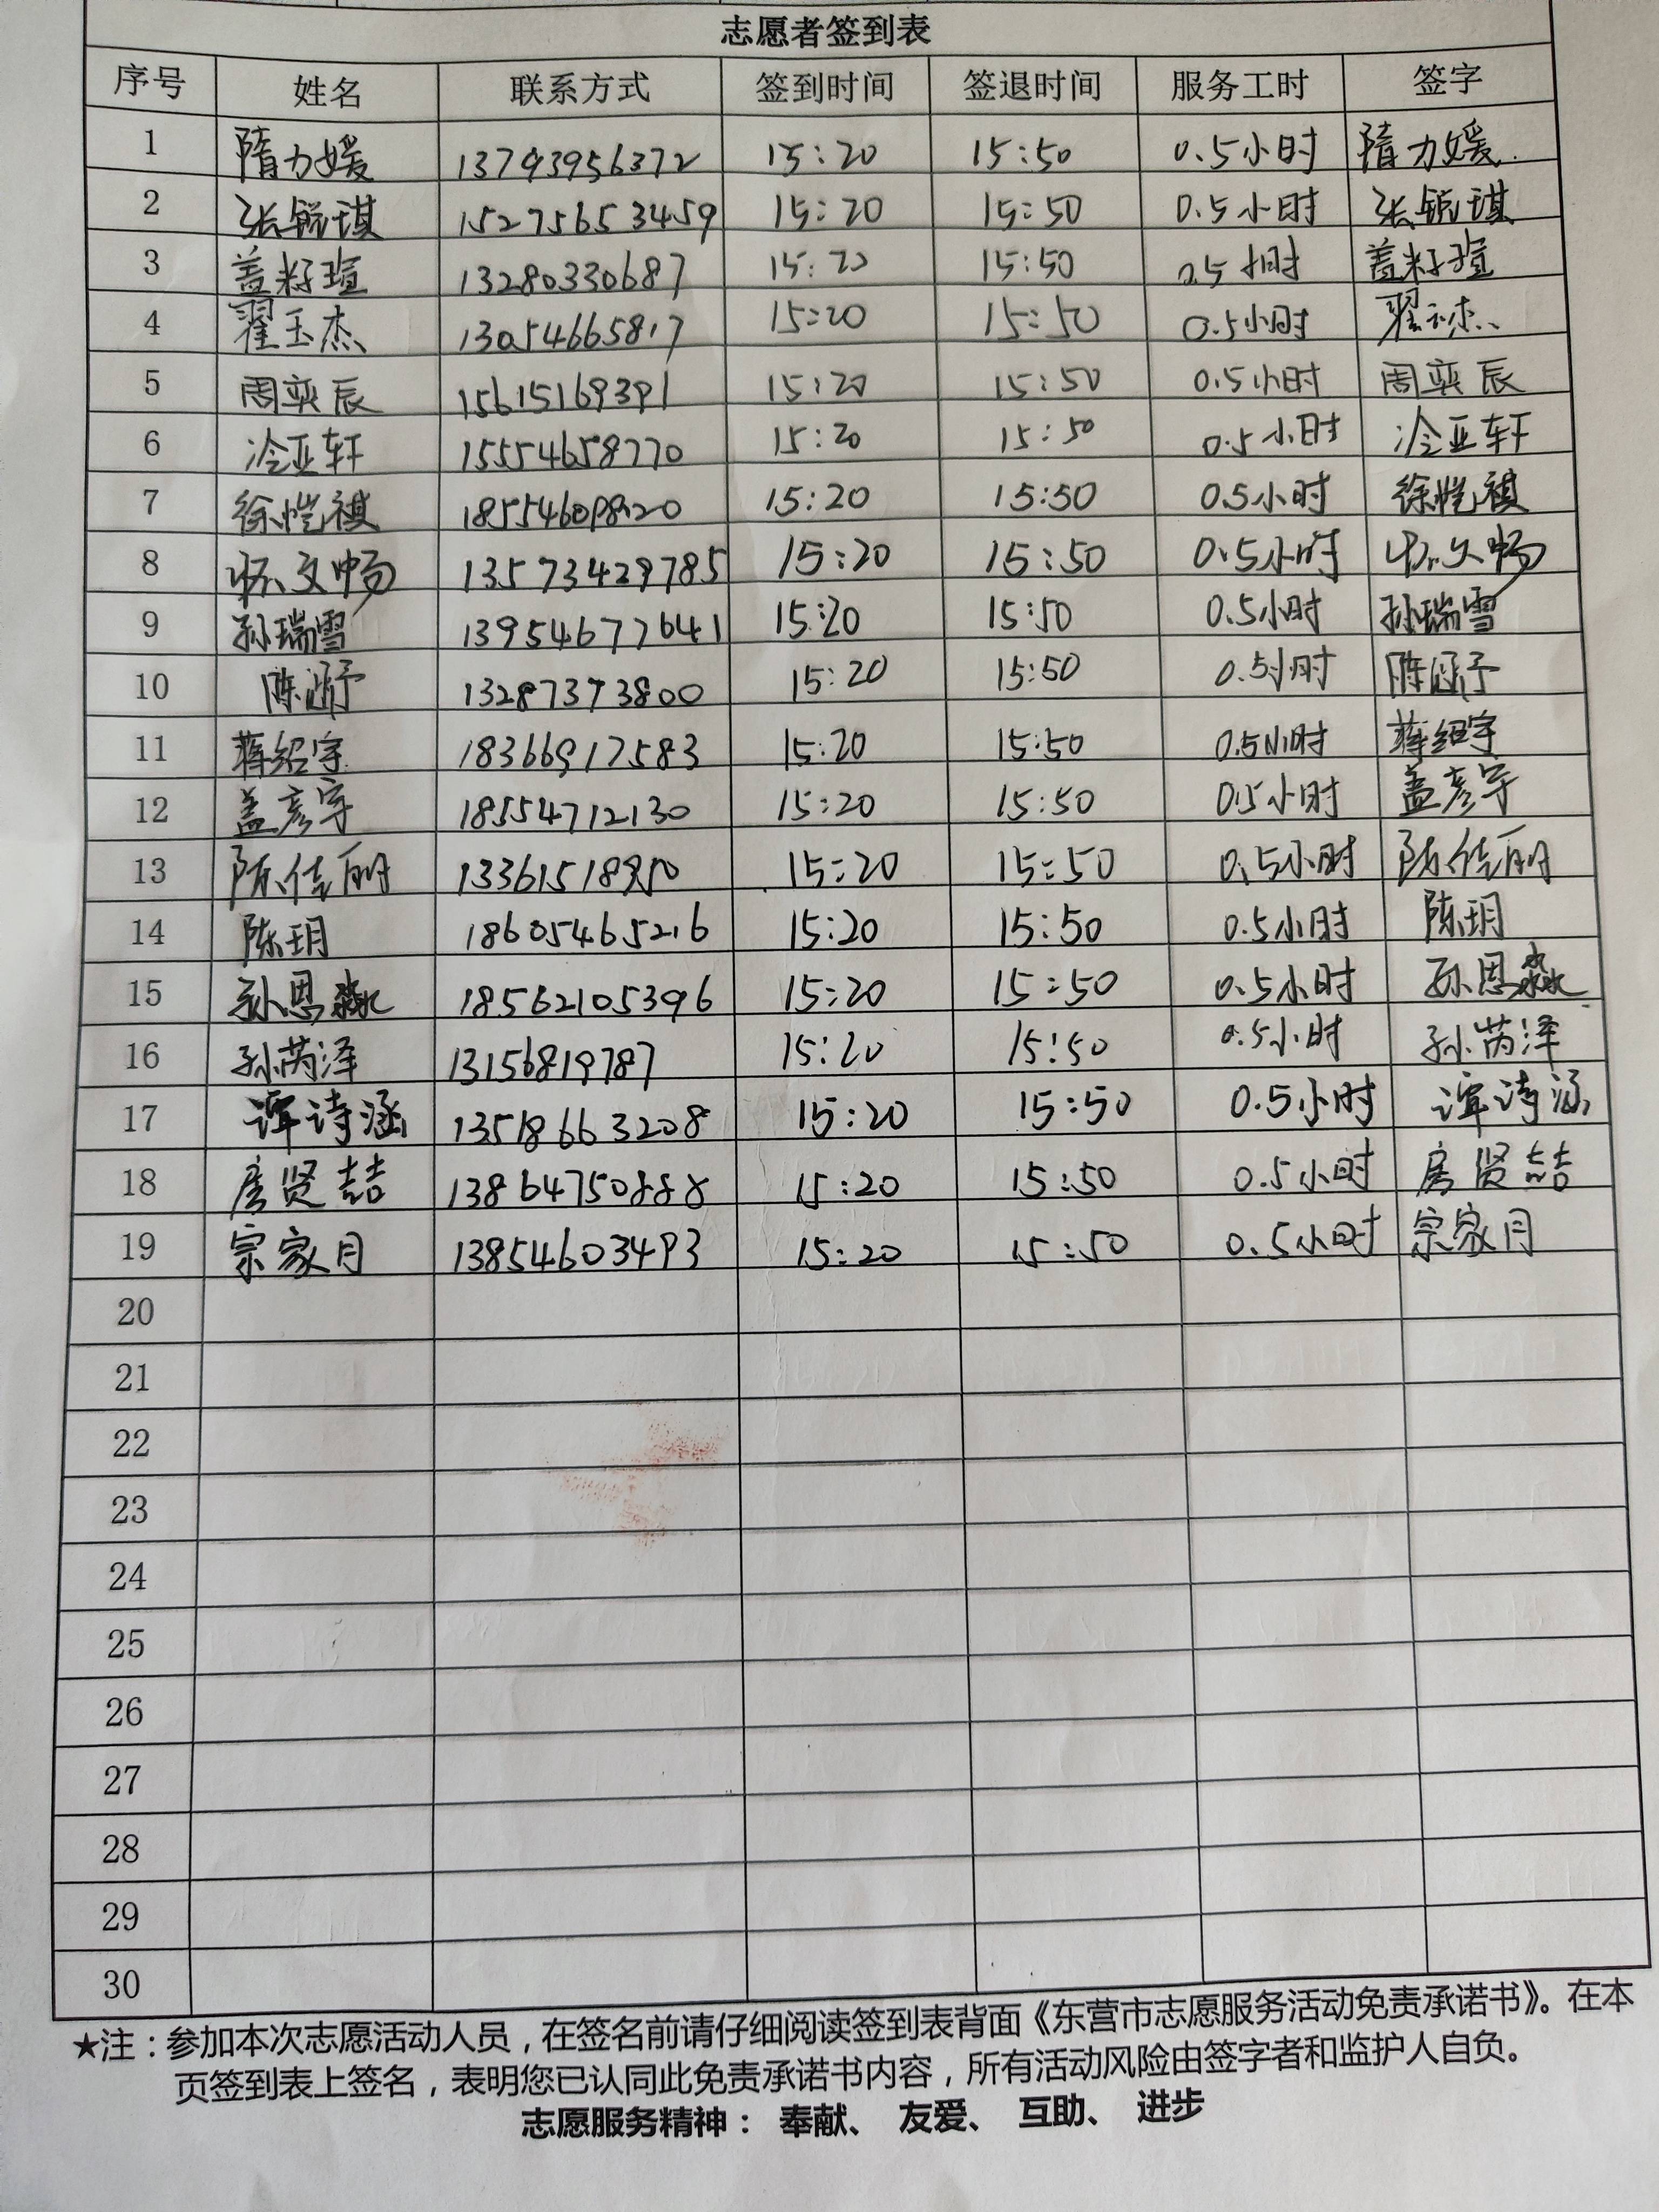 志愿者签到表
序号 姓名 联系方式 签到时间 签退时间 服务工时 签字
1 隋力媛 13793956372 15:20 15:50 0.5小时 隋力媛
2 张锐琪 15275653459 15:20 15:50 0.5小时 张锐琪
3 盖籽瑄 13280330687 15:20 15:50 0.5小时 盖籽瑄
4 翟玉杰 13054665817 15:20 15:50 0.5小时
5 周奕辰 15615169391 15:20 15:50 0.5小时 周奕辰
6 冷亚轩 15554658770 15:20 15:50 0.5小时 冷亚轩
7 徐恺祺 18554609820 15:20 15:50 0.5小时 徐恺祺
8 怀文畅 13573429785 15:20 15:50 0.5小时 怀文畅
9 孙瑞雪 13954677641 15:20 15:50 0.5小时 孙瑞雪
10 陈涵予 13287373800 15:20 15:50 0.5小时 陈涵予
11 蒋绍宇 18366917583 15:20 15:50 0.5小时 蒋绍宇
12 盖彦宇 18554712130 15:20 15:50 0.5小时 盖彦宇
13 陈佳丽 15:20 15:50 0.5小时 陈佳丽
14 陈玥 18605465216 15:20 15:50 0.5小时 陈玥
15 孙恩淼 18562105396 15:20 15:50 0.5小时 孙恩淼
16 孙芮泽 13156819787 15:20 15:50 0.5小时 孙芮泽
17 谭诗涵 13518663208 15:20 15:50 0.5小时 谭诗涵
18 房贤喆 13864750888 15:20 15:50 0.5小时 房贤喆
19 宗家月 13854603493 15:20 15:50 0.5小时 宗家月
20
21
22
23
24
25
26
27
28
29
30
★注：参加本次志愿活动人员，在签名前请仔细阅读签到表背面《东营市志愿服务活动免责承诺书》。在本
页签到表上签名，表明您已认同此免责承诺书内容，所有活动风险由签字者和监护人自负。
志愿服务精神： 奉献、 友爱、 互助、 进步